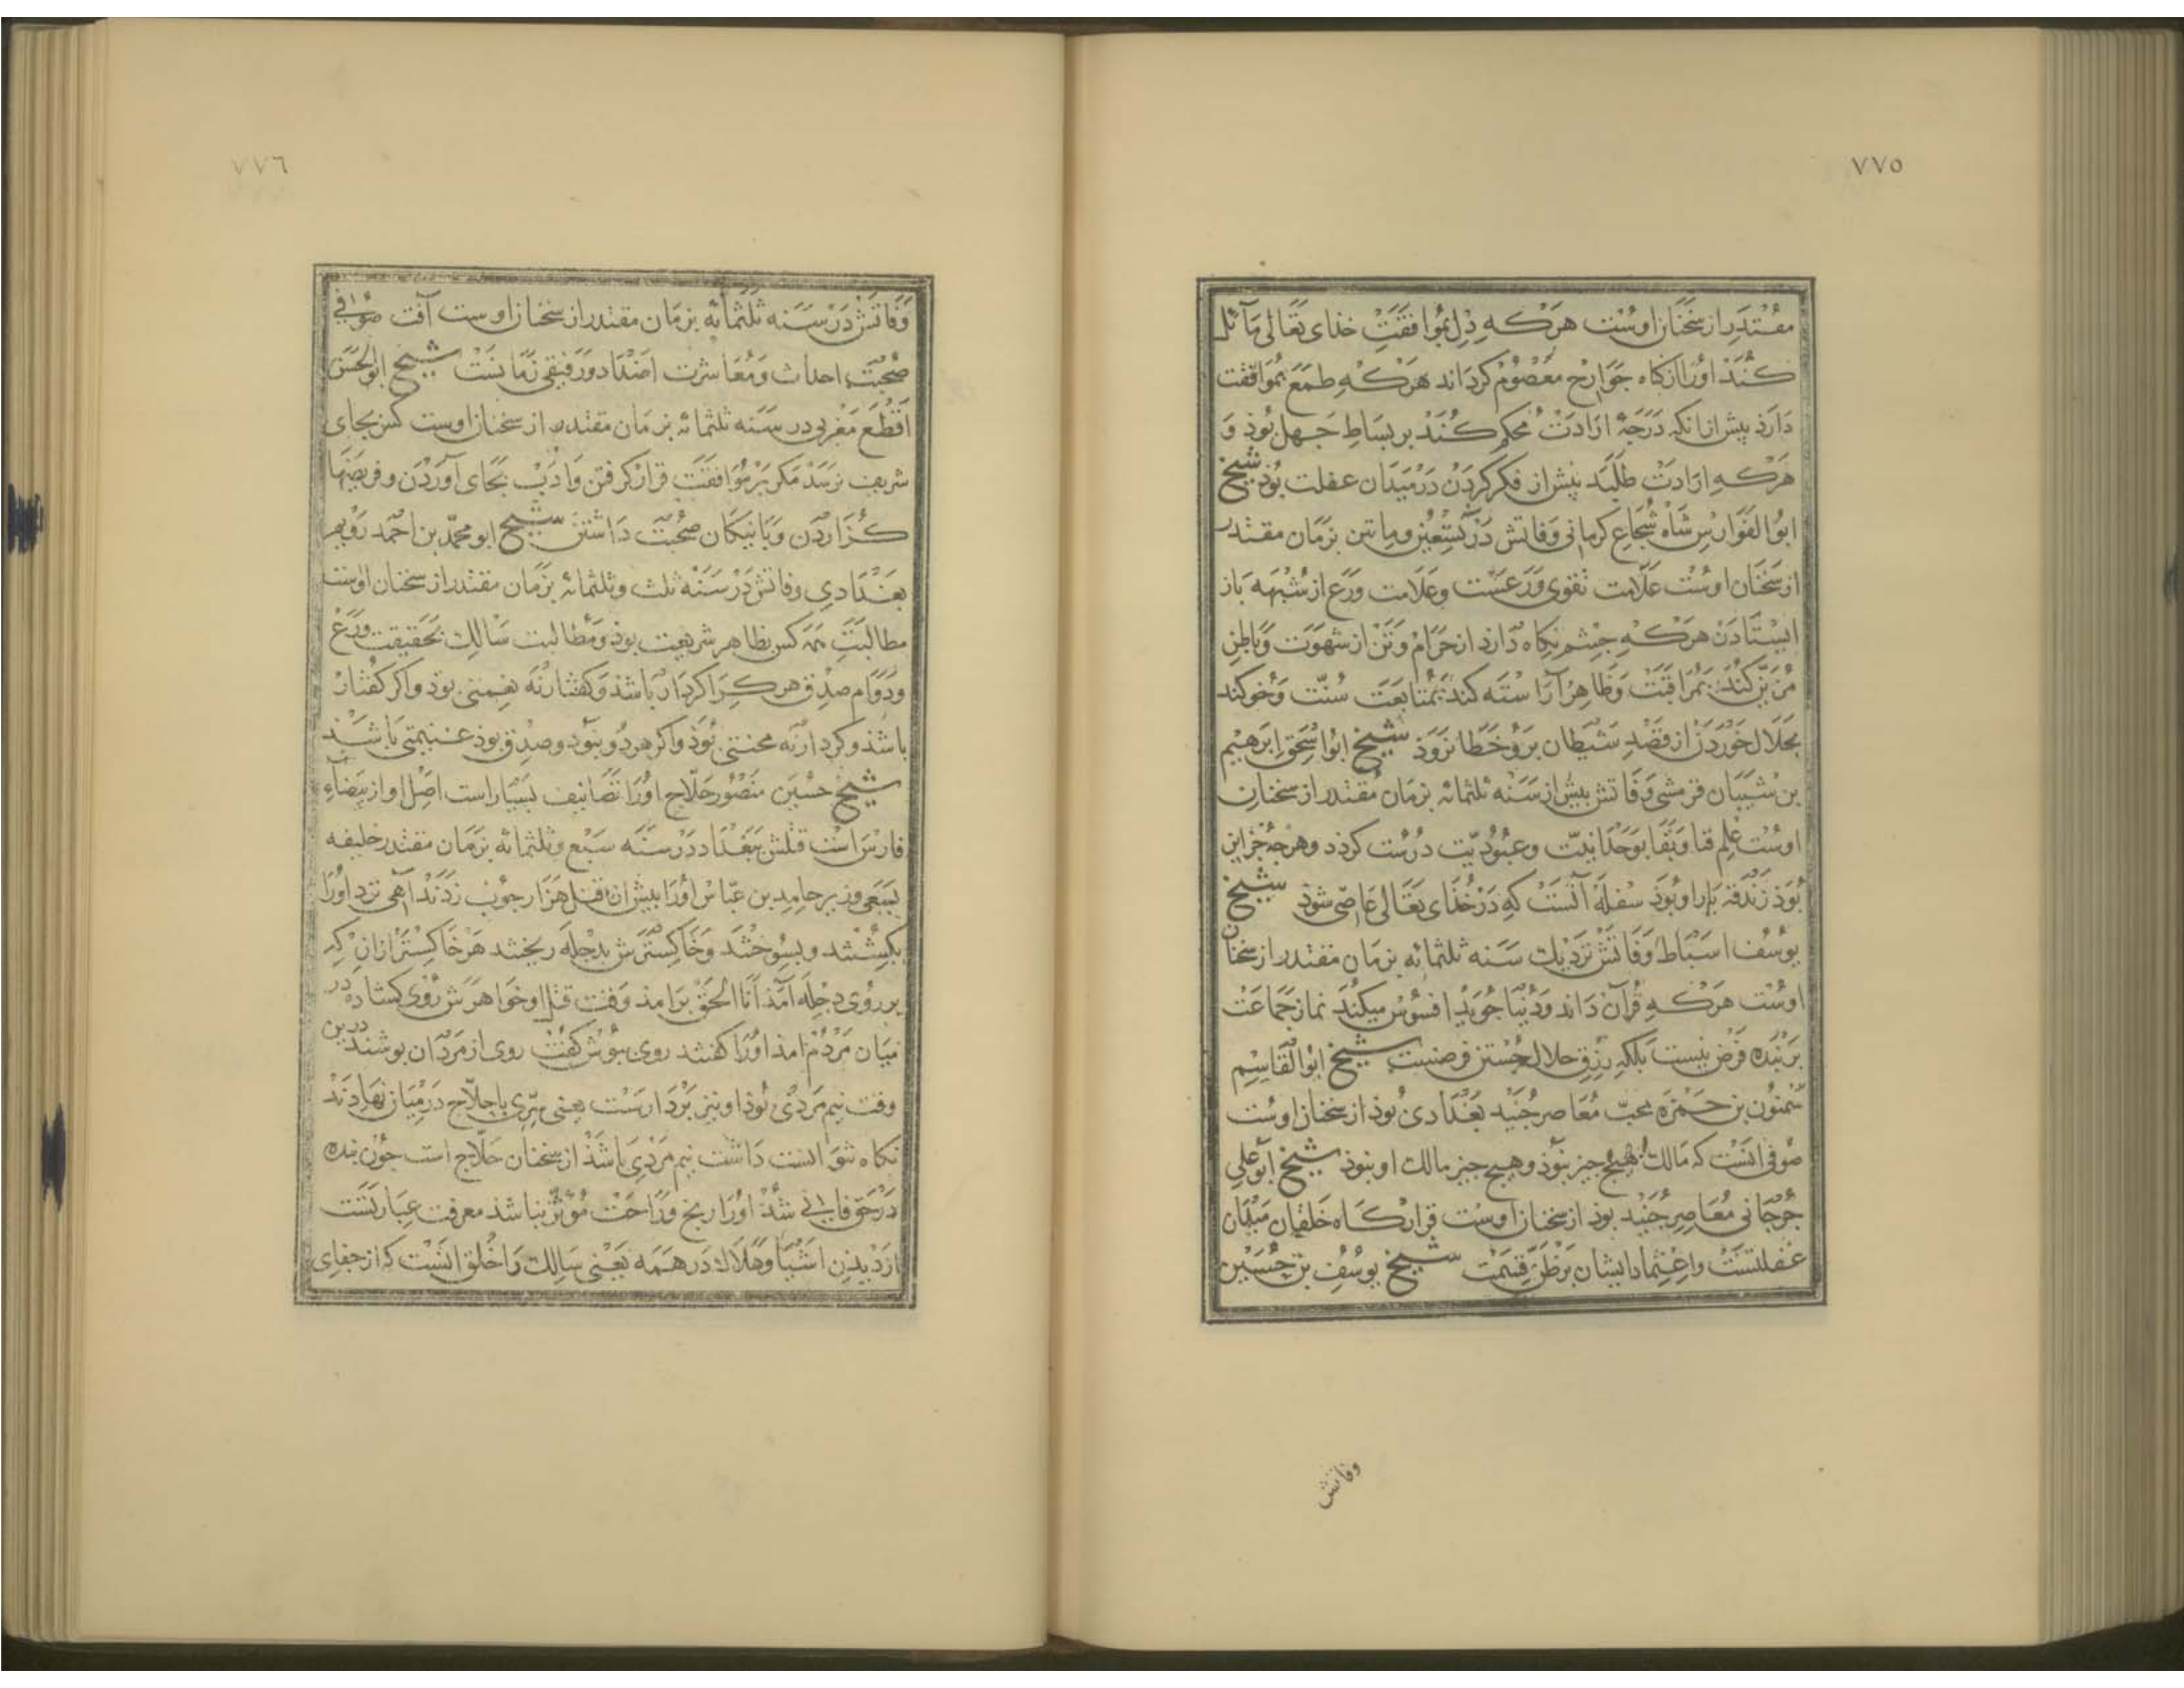 ٧٧٥
مقتدر از سخنان اوست هرکه دل بموافقت خذای تعالی مائل
کند او را از کناه جوارح معصوم کرداند هرکه طمع بموافقت
دارد پیش از انکه درجهٔ ارادت محکم کند بر بساط جهل بوذ و
هرکه ارادت طلبد پیش از فکر کردن در میدان غفلت بوذ شیخ
ابو الفوارس شاه شجاع کرمانی وفاتش در تسعین و ماتین بزمان مقتدر
از سخنان اوست علامت تقوی ورعست وعلامت ورع از شبهه باز
ایستادن هرکه جشم نکاه دارد از حرام و تن از شهوت و باطن
مزین کند بمراقبت و ظاهر آراسته کند بمتابعت سنت و خو کند
بحلال خوردن از قصد شیطان برو خطا نرود شیخ ابو اسحق ابرهیم
بن شیبان قرمشی وفاتش پیش از سنه ثلثمائه بزمان مقتدر از سخنان
اوست علم فنا و بقا بوحدانیت و عبودیت درست کردد وهرجه جز این
بوذ زندقه بار او بوذ سفله آنست که در خذای تعالی عاصی شوذ شیخ
یوسف اسباط وفاتش نزدیک سنه ثلثمائه بزمان مقتدر از سخنان
اوست هرکه قرآن داند و دنیا جوید افسوس میکند نماز جماعت
بر بنده فرض نیست بلکه رزق حلال جستن فرضست شیخ ابو القاسم
سمنون بن حمزه محب معاصر جنید بغدادی بوذ از سخنان اوست
صوفی انست که مالک هیج جیز نبوذ وهیج جیز مالک او نبوذ شیخ ابو علی
جرجانی معاصر جنید بوذ از سخنان اوست قرارکاه خلقان میدان
غفلتست واعتماد ایشان بر ظن قسمت شیخ یوسف بن حسین
وفاتش
٧٧٦
وفاتش در سنه ثلثمائه بزمان مقتدر از سخنان اوست آفت صوفی
صحبت احداث ومعاشرت اضداد ورفیقی زنانست شیخ ابو الحسن
اقطع مغربی در سنه ثلثمائه بزمان مقتدر از سخنان اوست کس بجای
شریف نرسد مکر بر موافقت قرار کرفتن وادب بجای آوردن وفریضها
کزاردن وبا نیکان صحبت داشتن شیخ ابو محمد بن احمد رویم
بغدادی وفاتش در سنه ثلث وثلثمائه بزمان مقتدر از سخنان اوست
مطالبت همه کس بظاهر شریعت بوذ ومطالبت سالک بحقیقت ورع
ودوام صدق هرکرا کردار باشد وکفتار نه نعمتی بوذ واکر کفتار
باشذ وکردار نه محنتی بوذ واکر هردو نبوذ وصدق بوذ غنیمتی باشد
شیخ حسین منصور حلاج اورا تصانیف بسیار است اصل او از بیضاء
فارس است قتلش ببغداد در سنه سبع وثلثمائه بزمان مقتدر خلیفه
بسعی وزیر حامد بن عباس اورا پیش از قتل هزار جوب زدند آهی نزد اورا
بکشتند وبسوختند وخاکسترش بدجله ریختند هر خاکستر از ان که
بر روی دجله آمد انا الحق برامذ وقت قتل او خواهرش روی کشاده در
میان مردم امذ اورا کفتند روی بپوش کفت روی از مردان پوشند درین
وقت نیم مردی بوذ او نیز بر دارست یعنی سری با حلاج در میان نهادند
نکاه نتوانست داشت نیم مردی باشذ از سخنان حلاج است جون بنده
در حق فانی شذ اورا رنج وراحت مؤثر نباشد معرفت عبارتست
از دیدن اشیا وهلاک در همه یعنی سالک را خلق انست که از جفای